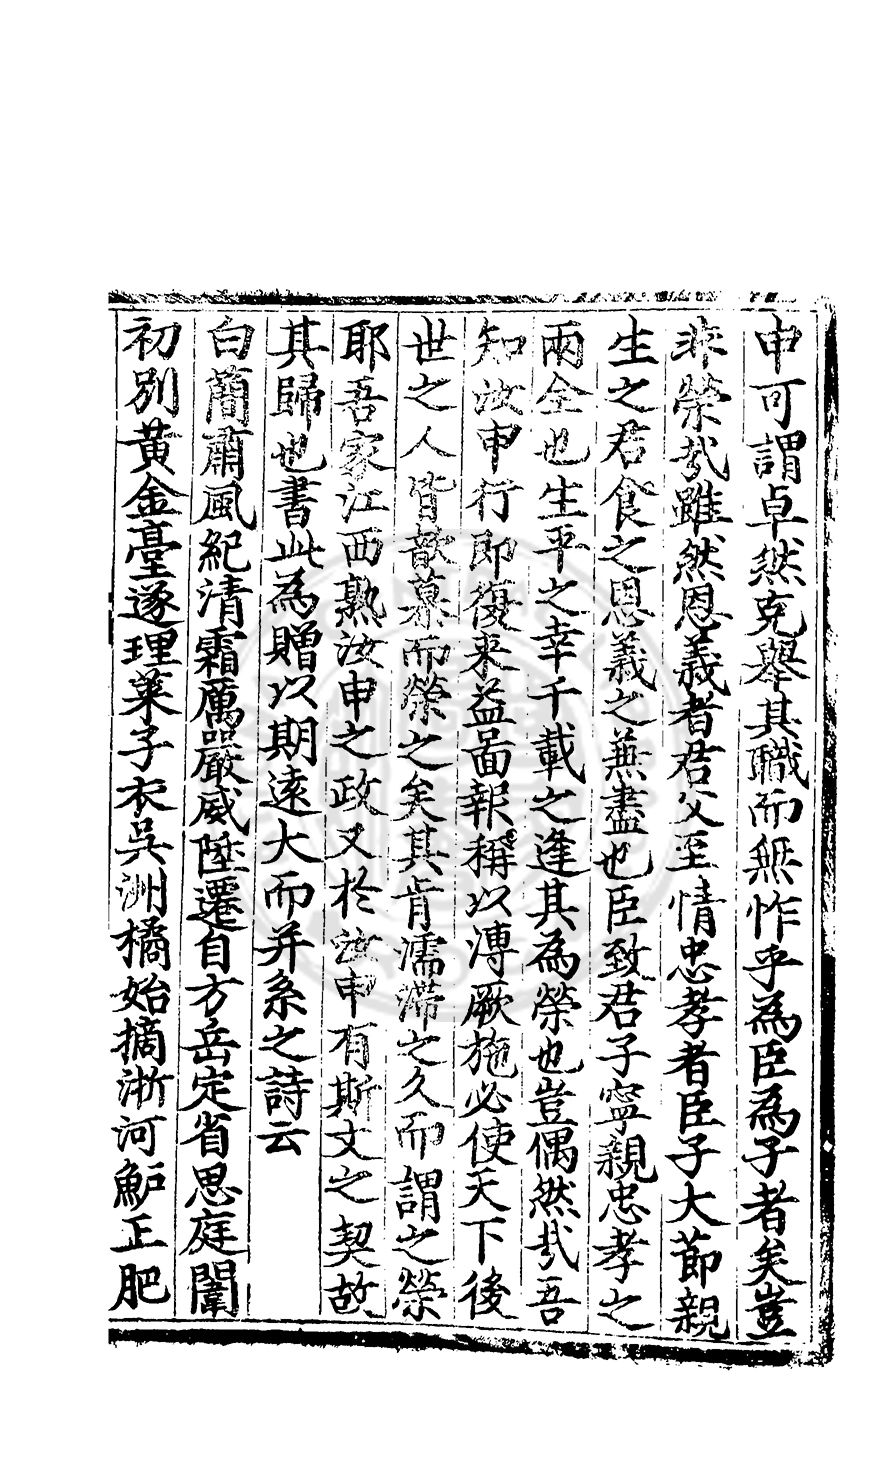 申可謂卓然克舉其職而無怍乎為臣為子者矣豈
非榮㢤雖然恩義者君父至情忠孝者臣子大節親
生之君食之恩義之無盡也臣致君子寧親忠孝之
兩全也生平之幸千載之逢其為榮也豈偶然㢤吾
知汝申行即復来益啚報稱以溥厥施必使天下後
世之人皆歆慕而榮之矣其肯濡滯之久而謂之榮
耶吾家江西熟汝申之政又於汝申有斯文之契故
其歸也書此為贈以期逺大而并系之詩云
白簡肅風紀清霜厲嚴威陞遷自方岳定省思庭闈
初別黃金臺遂理萊子衣吳洲橘始摘浙河鲈正肥